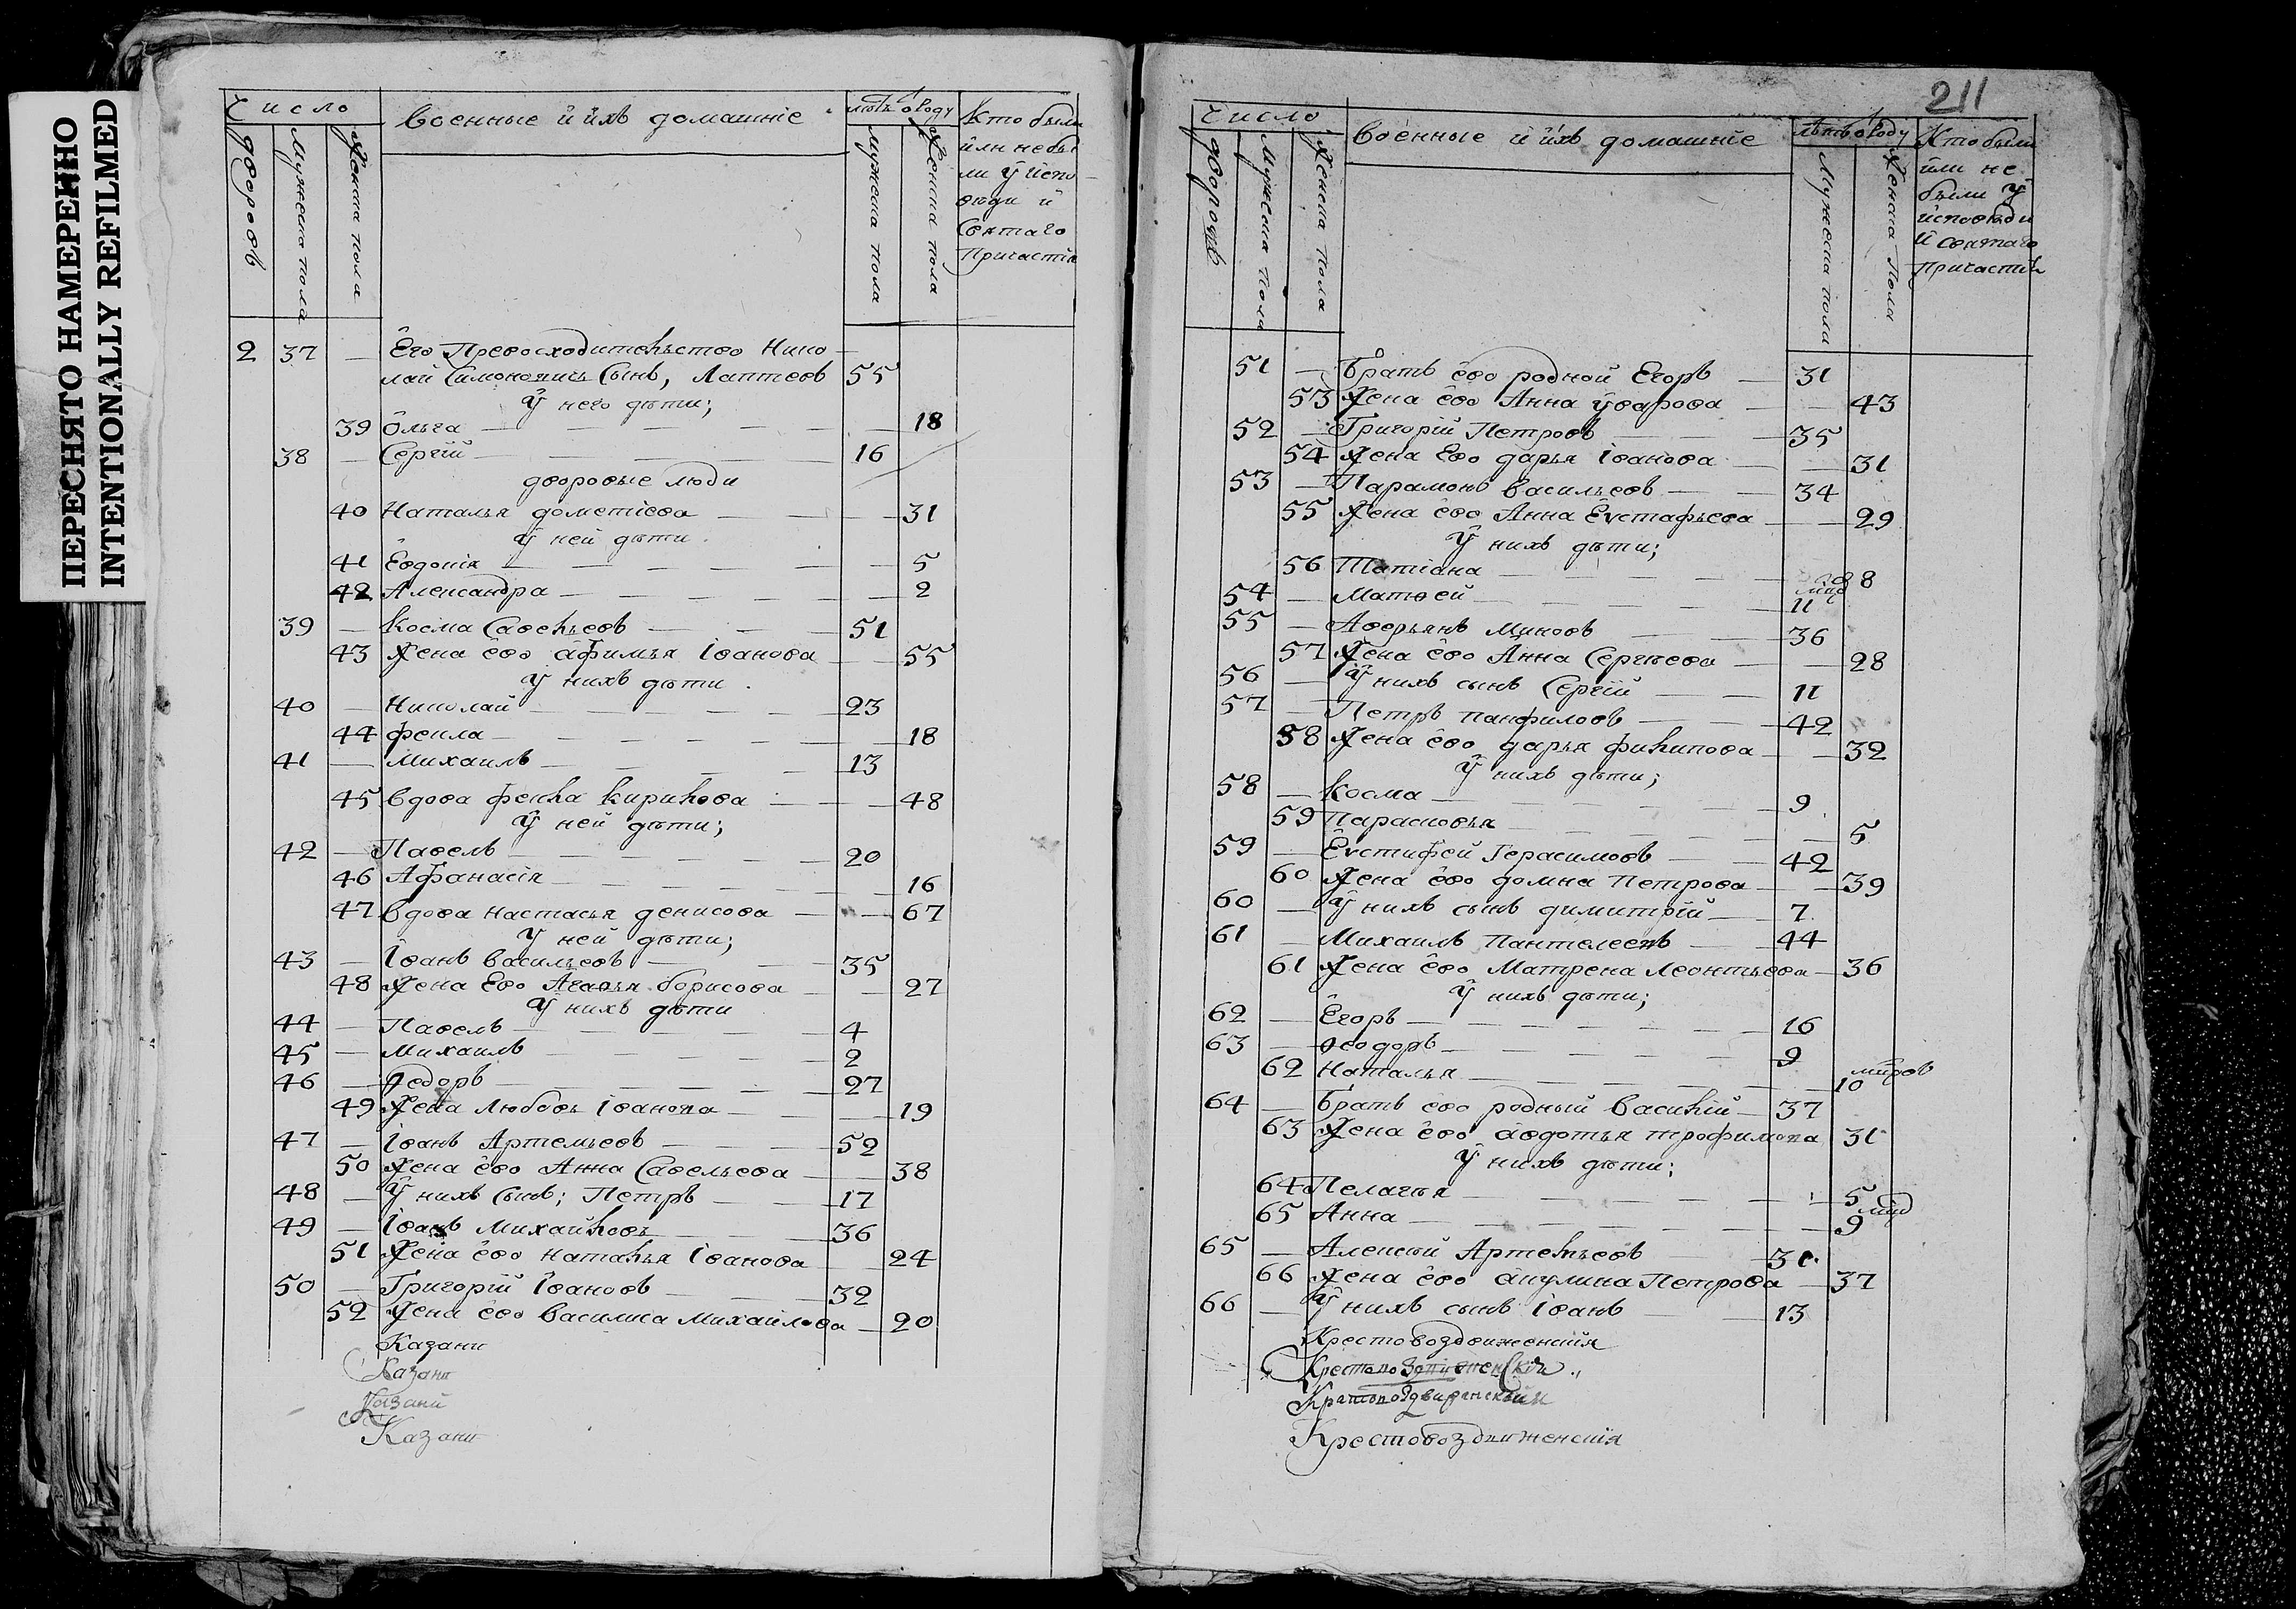 ПЕРЕСНЯТО НАМЕРЕННО
INTENTIONALLY REFILMED
Число
военные и ихъ домашнїе
лѣтъ ѿ роду
Кто были
или небы
ли ў испо
вѣди и
Святаго
Причастїя
дворовъ
Мужеска пола
Женска пола
Мужеска пола
Женска пола
2 37 — Его Превосходительство Нико
лай Симоновичь Сынъ, Лаптевъ 55
ў него дѣти;
39 Ольга — 18
38 — Сергїй — 16
дворовые люди
40 Наталья дометїева — 31
ў ней дѣти
41 Евдокїя — 5
42 Александра — 2
39 — Косма Савельевъ — 51
43 Жена ево афимья Іванова — 55
ў нихъ дѣти
40 — Николай — 23
44 фекла — 18
41 — Михаилъ — 13
45 вдова фекла кирилова — 48
ў ней дѣти;
42 — Павелъ — 20
46 Афанасїя — 16
47 вдова настасья денисова — 67
ў ней дѣти;
43 — Іванъ васильевъ — 35
48 Жена Ево Агафья борисова — 27
ў нихъ дѣти
44 — Павелъ — 4
45 — Михаилъ — 2
46 — Федоръ — 27
49 Жена Любовь Іванова — 19
47 — Іванъ Артемьевъ — 52
50 Жена ево Анна Савельева — 38
48 — ў нихъ Сынъ; Петръ — 17
49 — Іванъ Михайловъ — 36
51 Жена ево наталья Іванова — 24
50 — Григорїй Івановъ — 32
52 Жена ево василиса михаилова — 20
Казани
Казани
Казани
Казани
211
Число
военные и ихъ домашнїе
лѣтъ ѿ роду
Кто были
или не
были ў
исповѣди
и святаго
Причастїя
дворовъ
Мужеска пола
Женска пола
Мужеска пола
Женска пола
51 — братъ ево родной Егоръ — 31
53 Жена ево Анна ўварова — 43
52 — Григорїй Петровъ — 35
54 Жена Ево дарья Іванова — 31
53 — Парамонъ васильевъ — 34
55 Жена ево Анна Еѵстафьева — 29
ў нихъ дѣти;
56 Татїана — 8
54 — Матвей — 11
55 — Аверьянъ Миновъ — 36
57 Жена ево Анна Сергѣева — 28
56 — ў нихъ сынъ Сергїй — 11
57 — Петръ панфиловъ — 42
58 Жена ево дарья филипова — 32
ў нихъ дѣти;
58 — Косма — 9
59 Парасковья — 5
59 — Еѵстифей Герасимовъ — 42
60 Жена ево домна Петрова — 39
60 — ў нихъ сынъ димитрїй — 7
61 — Михаилъ пантелеевъ — 44
61 Жена ево Матрена леонтьева — 36
ў нихъ дѣти;
62 — Егоръ — 16
63 — Ѳеодоръ — 9
62 Наталья — 10
64 — братъ ево родный василїй — 37
63 Жена ево авдотья трофимова 31
ў нихъ дѣти;
64 Пелагѣя — 5
65 Анна — 9
65 — Алексѣй Артемьевъ — 31
66 Жена ево акулина Петрова — 37
66 — ў нихъ сынъ Іванъ — 13
Крестовоздвиженскїя
Крестовоздвиженскїя
Крестовоздвиженскїя